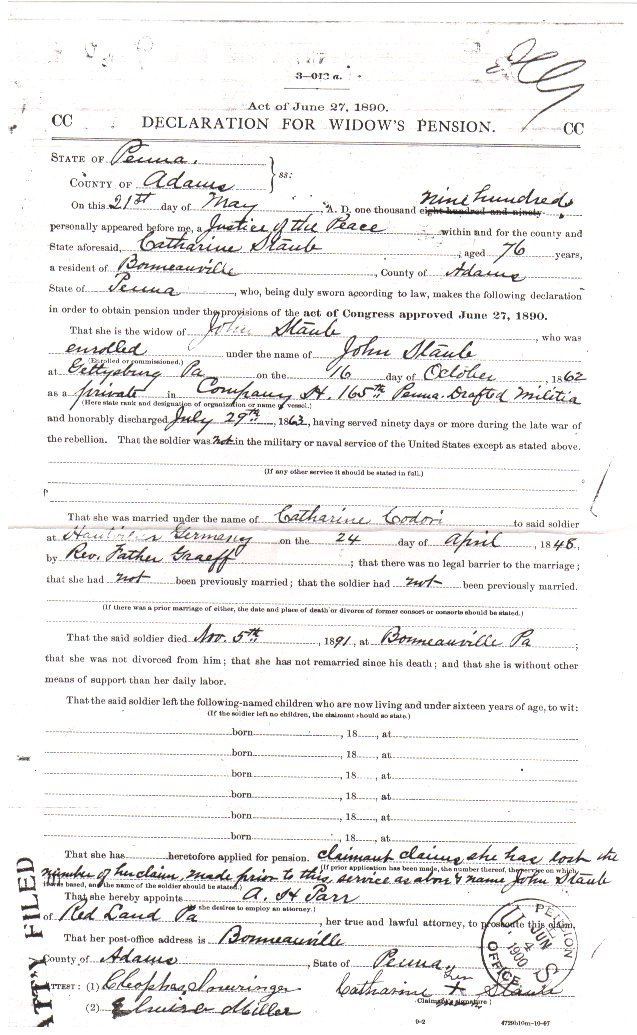 3—012 a.
Act of June 27, 1890.
CC DECLARATION FOR WIDOW'S PENSION. CC
STATE OF Penna.
COUNTY OF Adams } ss:
nine hundred
On this 21st day of May, A. D. one thousand eight hundred and ninety
personally appeared before me, a Justice of the Peace within and for the county and
State aforesaid, Catharine Staub, aged 76 years,
a resident of Bonneauville, County of Adams
State of Penna, who, being duly sworn according to law, makes the following declaration
in order to obtain pension under the provisions of the act of Congress approved June 27, 1890.
That she is the widow of John Staub, who was
enrolled under the name of John Staub
(Enrolled or commissioned.)
at Gettysburg Pa on the 16 day of October, 1862
as a private in Company H. 165th Penna. Drafted Militia
(Here state rank and designation of organization or name of vessel.)
and honorably discharged July 29th, 1863, having served ninety days or more during the late war of
the rebellion. That the soldier was not in the military or naval service of the United States except as stated above.
(If any other service it should be stated in full.)
That she was married under the name of Catharine Codori to said soldier
at Germany on the 24 day of April, 1848,
by Rev. Father Graeff; that there was no legal barrier to the marriage;
that she had not been previously married; that the soldier had not been previously married.
(If there was a prior marriage of either, the date and place of death or divorce of former consort or consorts should be stated.)
That the said soldier died Nov. 5th, 1891, at Bonneauville Pa;
that she was not divorced from him; that she has not remarried since his death; and that she is without other
means of support than her daily labor.
That the said soldier left the following-named children who are now living and under sixteen years of age, to wit:
(If the soldier left no children, the claimant should so state.)
born, 18, at
born, 18, at
born, 18, at
born, 18, at
born, 18, at
born, 18, at
That she has heretofore applied for pension. Claimant claims she has lost the
(If prior application has been made, the number thereof, the service on which
number of her claim, made prior to this, service as above & name John Staub
it was based, and the name of the soldier should be stated.)
That she hereby appoints A. H. Parr
(If she desires to employ an attorney.)
of Red Land Pa, her true and lawful attorney, to prosecute this claim.
That her post-office address is Bonneauville
County of Adams, State of Penna,
her
ATTEST: (1) Catharine + Staub
mark
Claimant's signature
(2) Miller
ATT'Y FILED
PENSION OFFICE
U.S.
JUN
4
1900
0-2 47250 10m-10-97